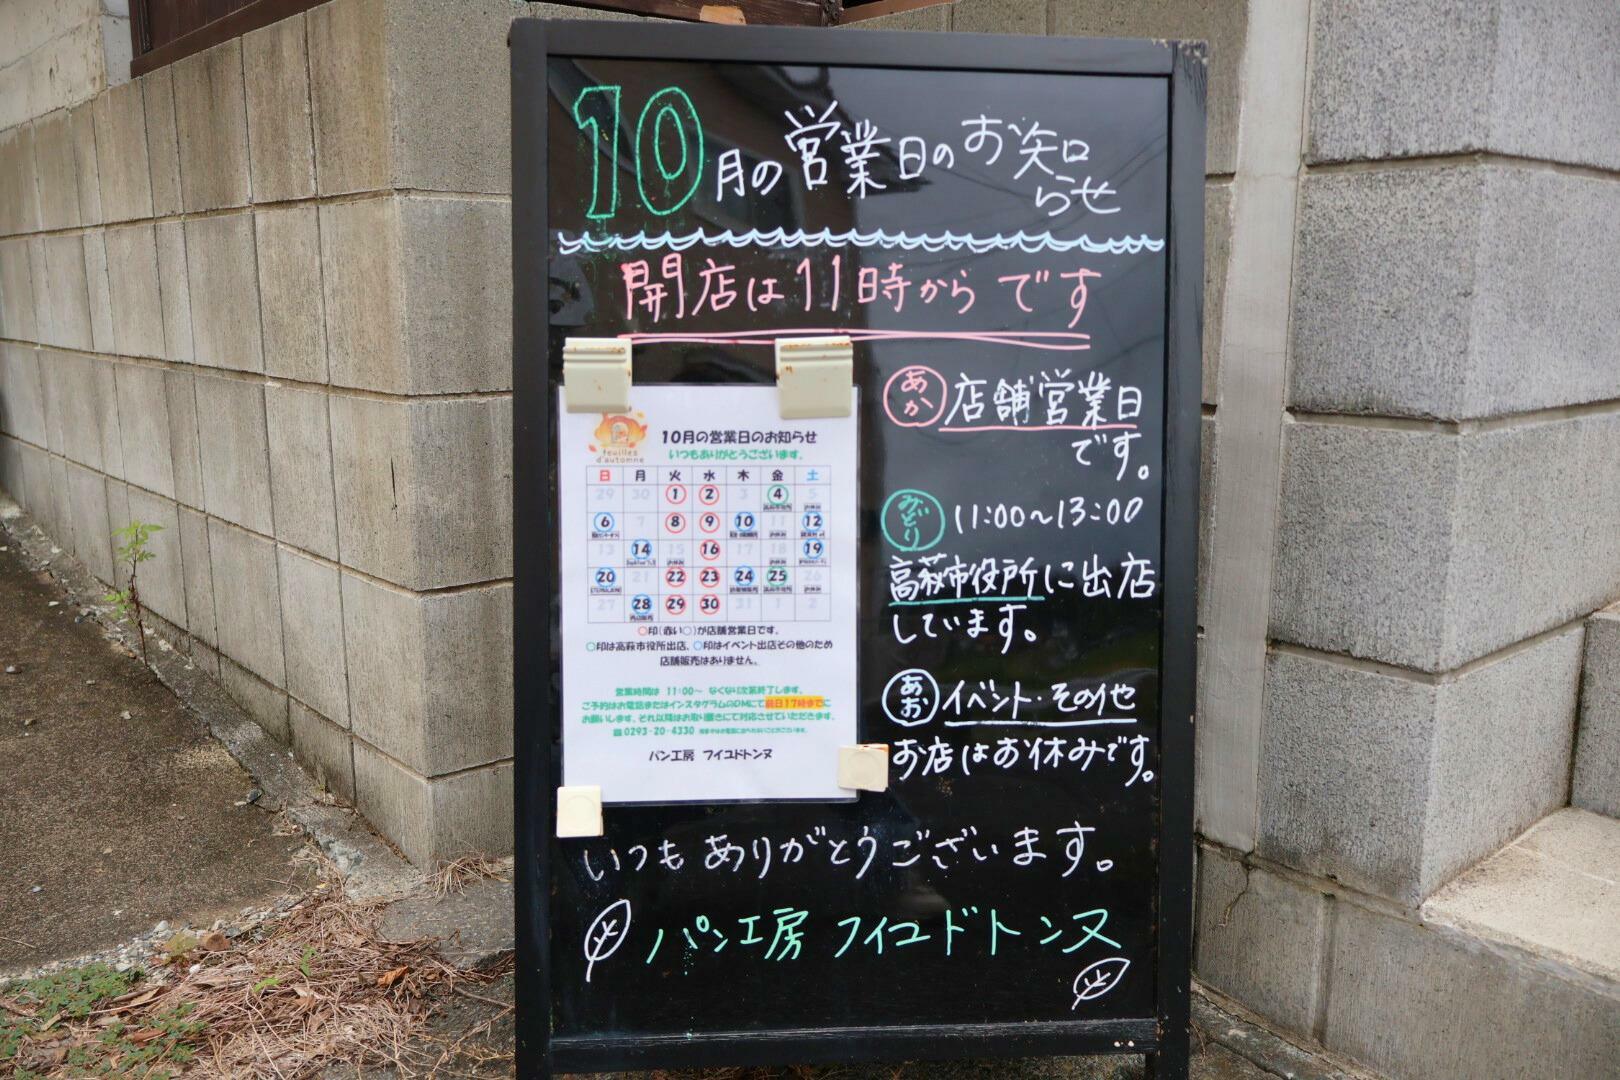 10月の営業日のお知らせ
開店は11時からです
あか 店舗営業日
です。
みどり 11:00~13:00
高萩市役所に出店
しています。
あお イベント・その他
お店はお休みです。
feuilles
d'automne
10月の営業日のお知らせ
いつもありがとうございます。
日 月 火 水 木 金 土
29 30 1 2 3 4 5
高萩市役所 お休み
6 7 8 9 10 11 12
お休み
13 14 15 16 17 18 19
お休み お休み
20 21 22 23 24 25 26
高萩市役所 お休み
27 28 29 30 31 1 2
○印(赤い○)が店舗営業日です。
○印は高萩市役所出店、○印はイベント出店その他のため
店舗販売はありません。
営業時間は 11:00~ なくなり次第終了します。
ご予約はお電話またはインスタグラムのDMにて前日17時までに
お願いします。それ以降はお取り置きにて対応させていただきます。
☎0293-20-4330
パン工房 フイユドトンヌ
いつもありがとうございます。
パン工房 フイユドトンヌ